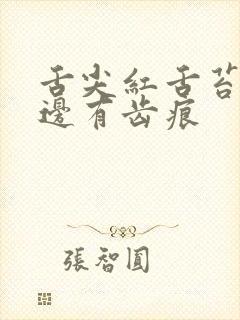 舌尖紅舌苔
邊有齿痕
張智圓